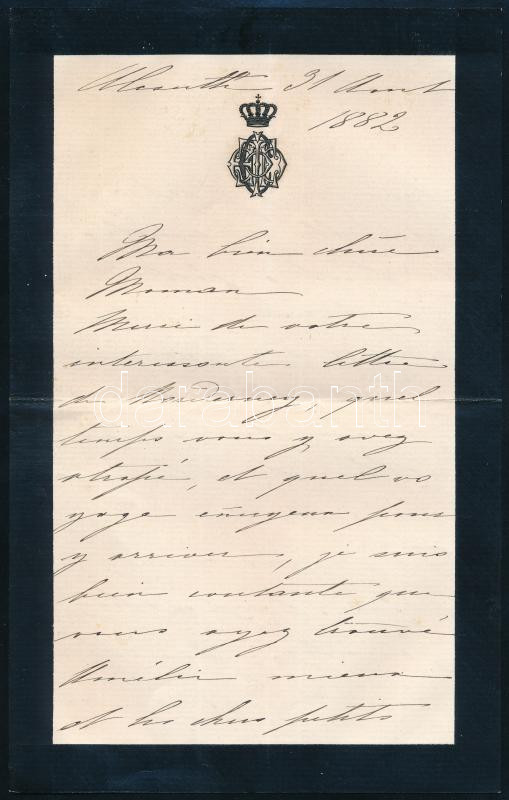 Alcsuth 31 Aout
1882
Ma bien chère
Maman
Merci de votre
interessante lettre
de Norderney, quel
temps vous y avez
atrapé, et quel vo
yage ennyeux pour
y arriver, je suis
bien contante que
vous ayez trouvé
Amélie mieux
et les chers petits
darabanth